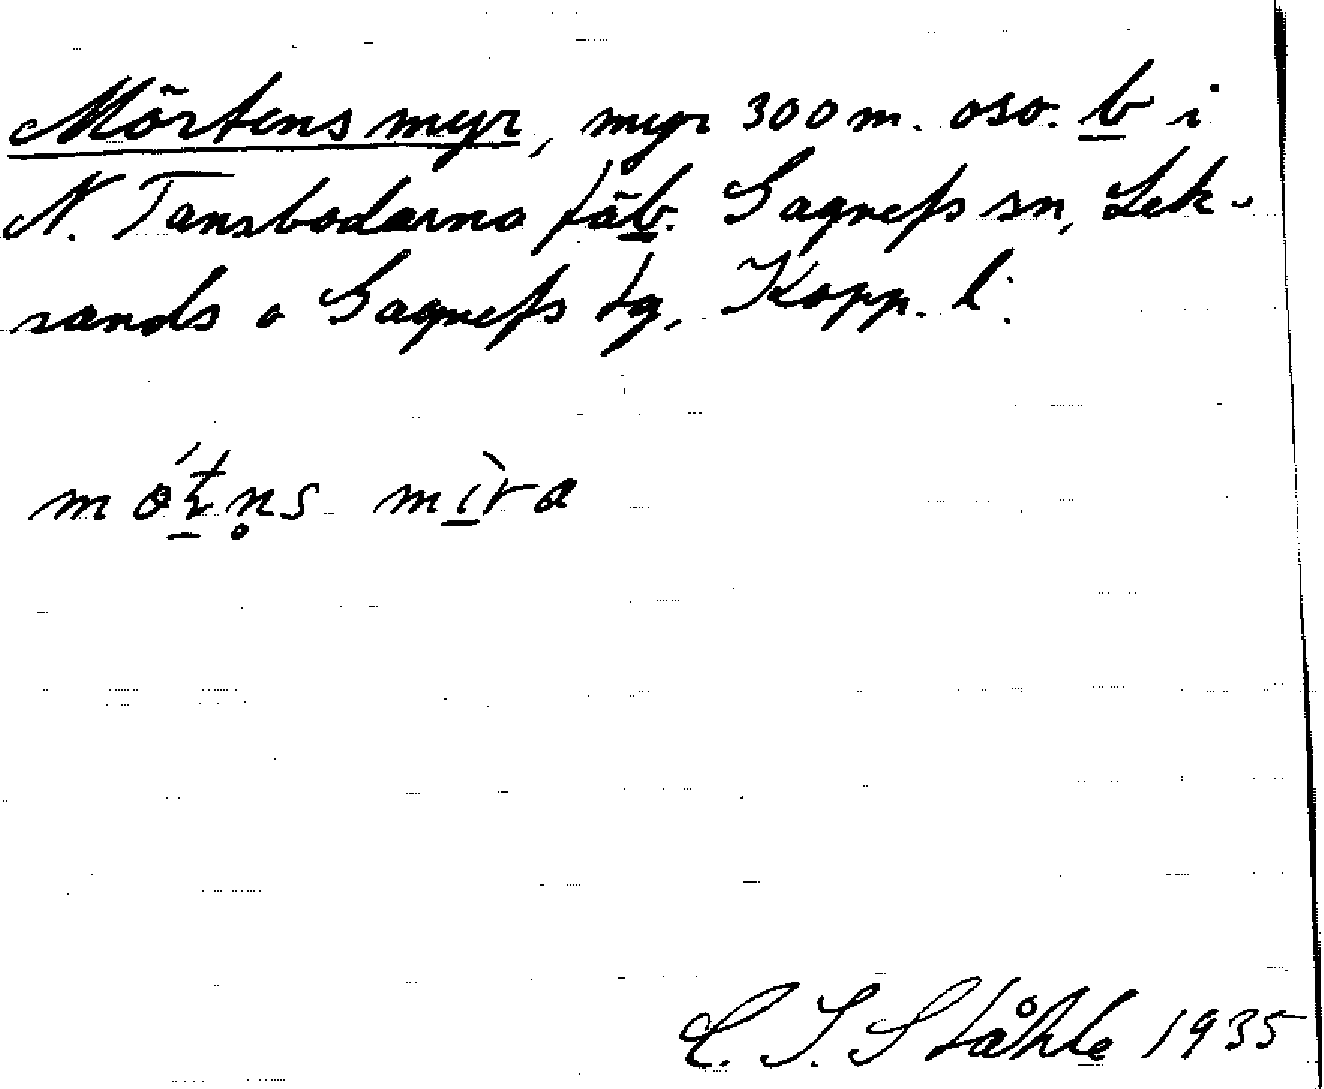 Mörtens myr, myr 300 m. oso. b i
N. Tansbodarna fäb. Gagnefs sn, Lek-
sands o Gagnefs tg, Kopp. l.
mṓt̠n̥s mìra
C. I. Ståhle 1935